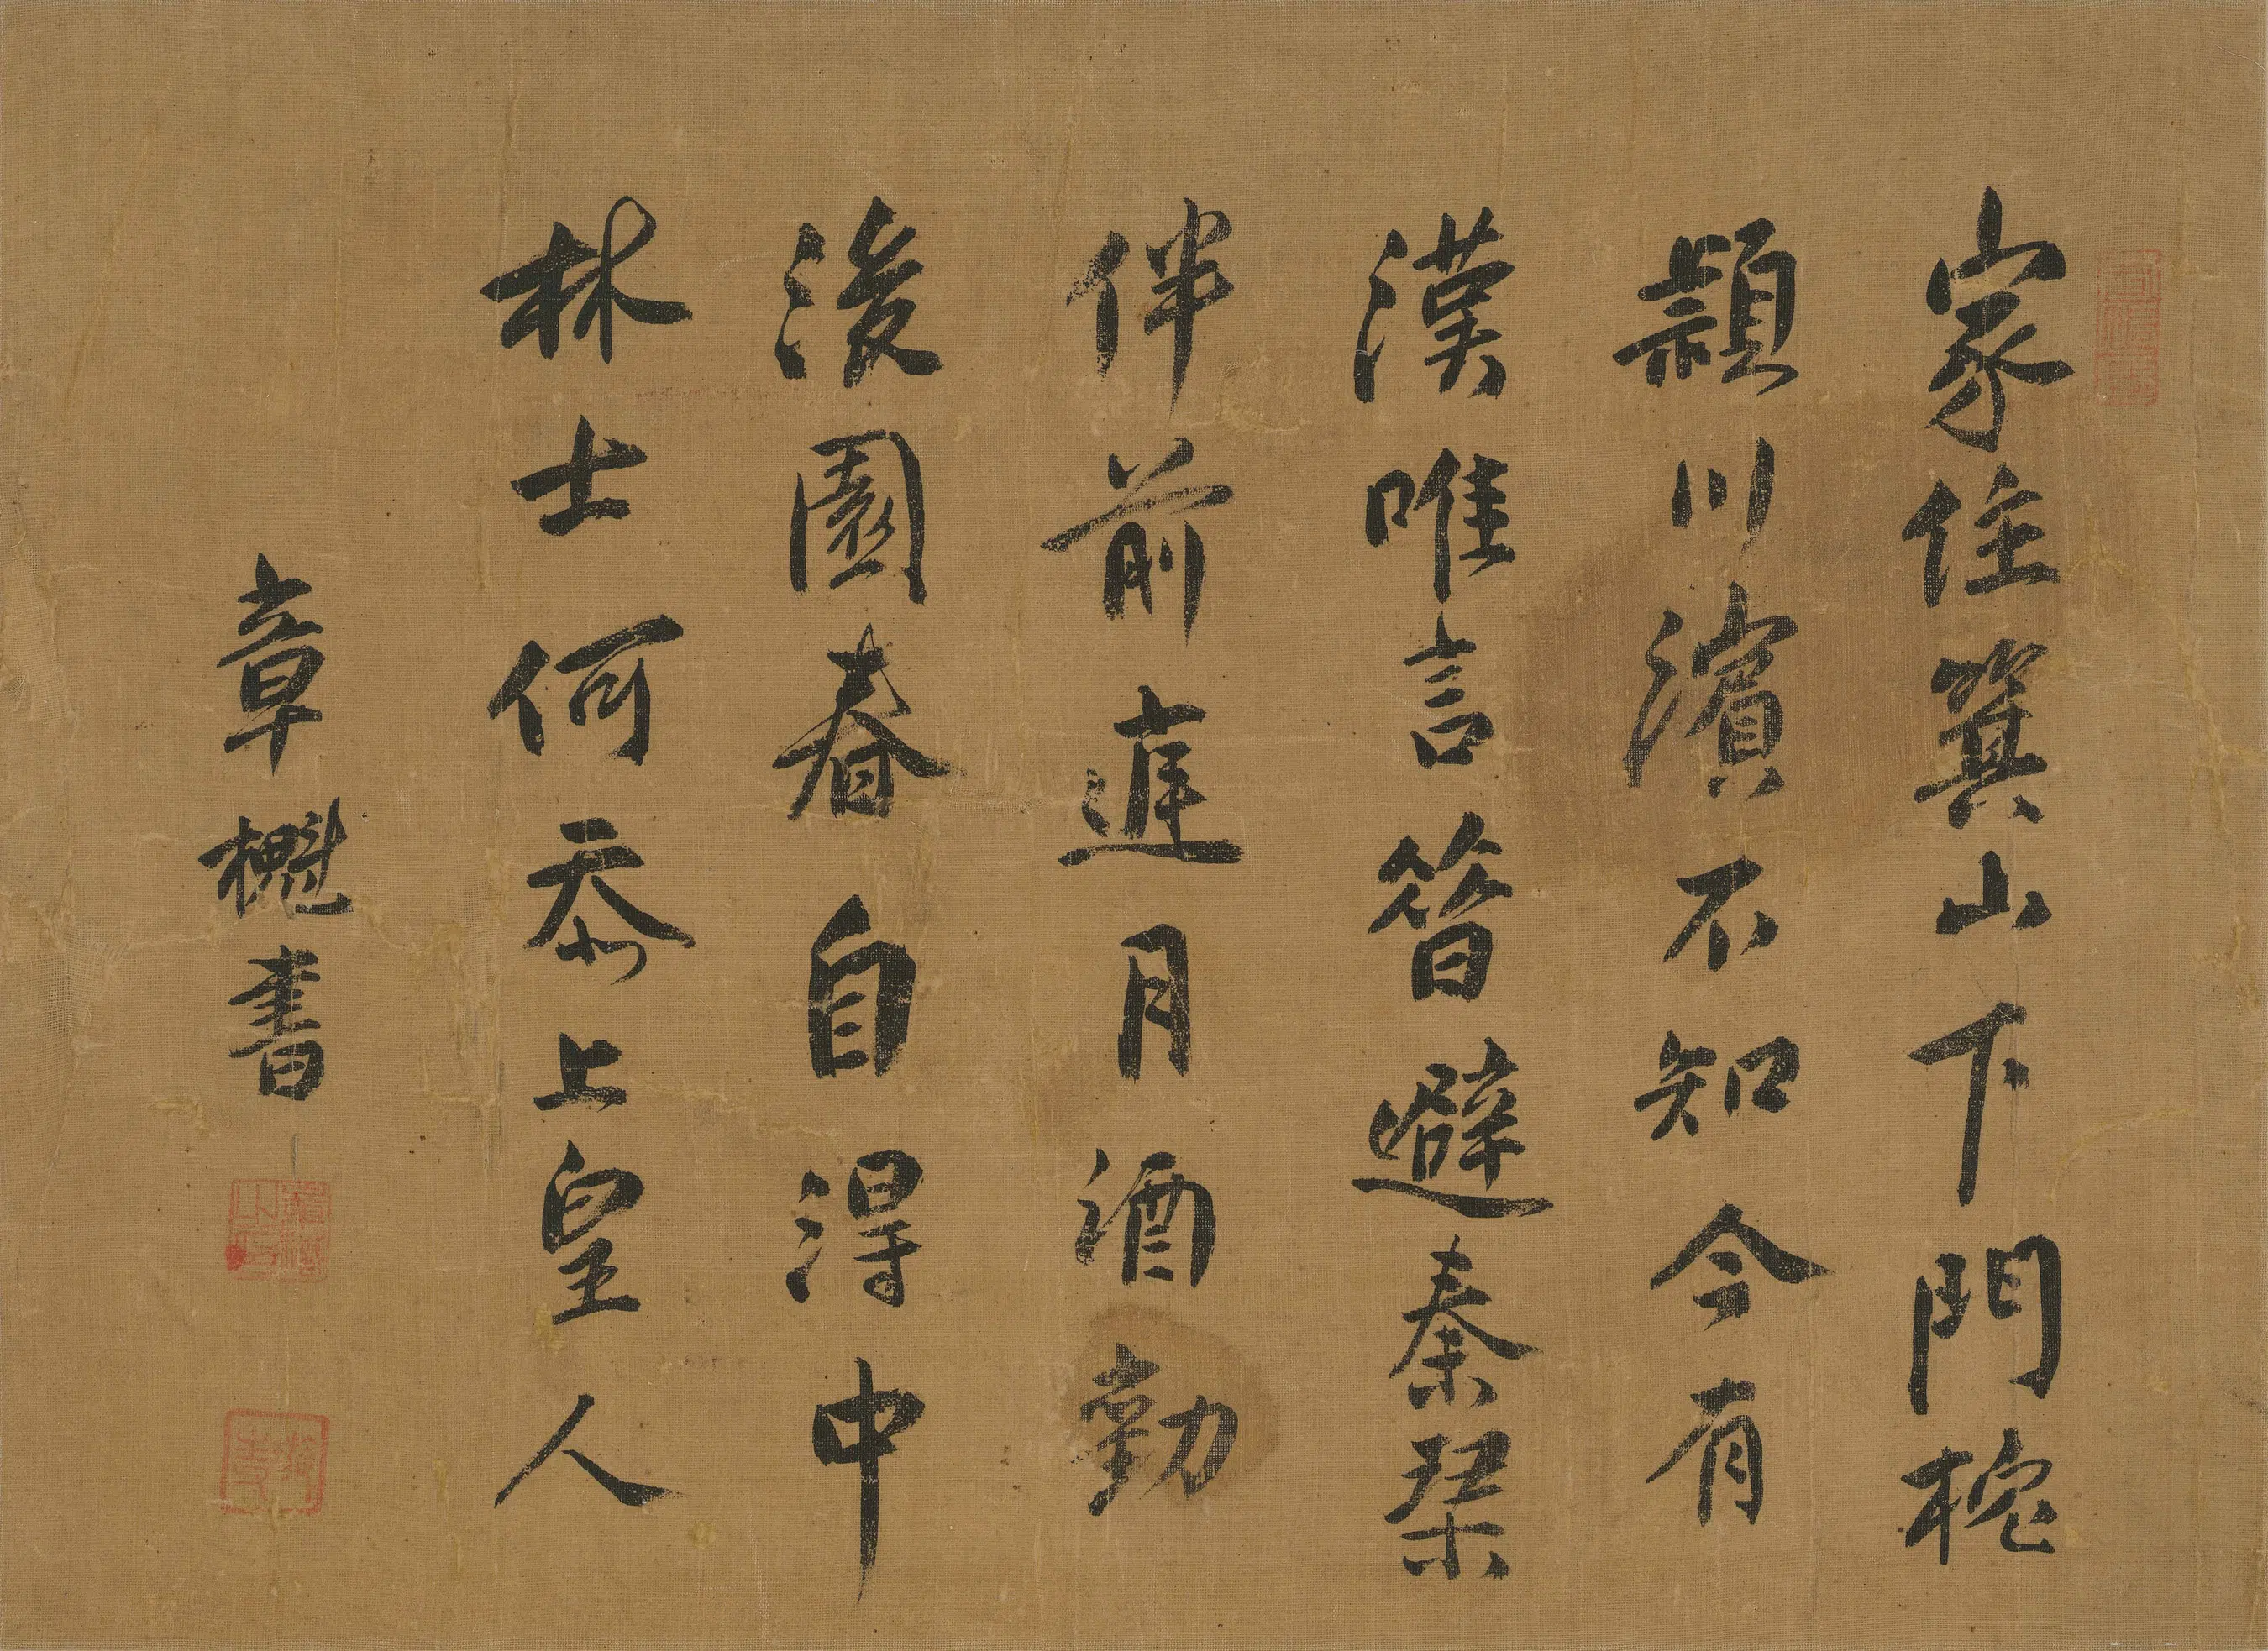 家住箕山下門枕
潁川濱不知今有
漢唯言昔避秦琹
伴前庭月酒勸
後園春自得中
林士何忝上皇人
章櫆書